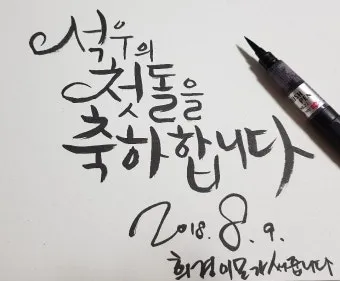 석우의
첫돌을
축하합니다
2018. 8. 9.
희경이모가 씁니다